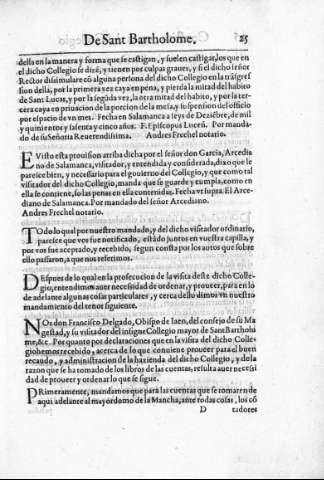 De Sant Bartholome. 25
della en la manera y forma que se castigan, y suelen castigar, los que en
el dicho Collegio se dizē, y tienen por culpas graues, y si el dicho señor
Rector dissimulare cō alguna persona del dicho Collegio en la trāsgres
sion della, por la primera vez caya en pena, y pierda la mitad del habito
de Sant Lucas, y por la segūda vez, la otra mitad del habito, y por la ter-
cera caya en priuacion de la porcion de la mesa, y suspension del officio
por espacio de vn mes. Fecha en Salamanca a seys de Deziēbre, de mil
y quinientos y sesenta y cinco años. F. Episcopus Lucēn. Por manda-
do de su Señoria Reuerendissima. Andres Frechel notario.
E Visto esta prouision arriba dicha por el señor don Garcia, Arcedia
no de Salamanca, visitador, y entendida y considerada, dixo que le
parece bien, y necessario para el gouierno del Collegio, y que como tal
visitador del dicho Collegio, manda que se guarde y cumpla, como en
ella se contiene, so las penas en ella contenidas. Fecha vt supra. El Arce-
diano de Salamanca. Por mandado del señor Arcediano.
Andres Frechel notario.
TOdo lo qual por nuestro mandado, y del dicho visitador ordinario,
parece que vos fue notificado, estādo juntos en vuestra capilla, y
por vos fue aceptado, y recebido, segun consta por los autos que sobre
ello passaron, a que nos referimos.
DEspues de lo qual en la prosecucion de la visita deste dicho Colle-
gio, entendimos auer necessidad de ordenar, y proueer, para en lo
de adelante algunas cosas particulares, y cerca dello dimos vn nuestro
mandamiento del tenor siguiente.
NOs don Francisco Delgado, Obispo de Iaen, del consejo de su Ma
gestad, y su visitador del insigne Collegio mayor de Sant Bartholo
me, &c. Por quanto por declaraciones que en la visita del dicho Colle-
gio hemos recebido, acerca de lo que conuiene proueer para el buen
recaudo, y administracion de la hazienda del dicho Collegio, y de la
razon que se ha tomado de los libros de las cuentas, resulta auer necessi
dad de proueer y ordenar lo que se sigue.
PRimeramente, mandamos que para las cuentas que se tomaren de
aqui adelante al mayordomo de la Mancha, ante todas cosas, los cō
D tadores